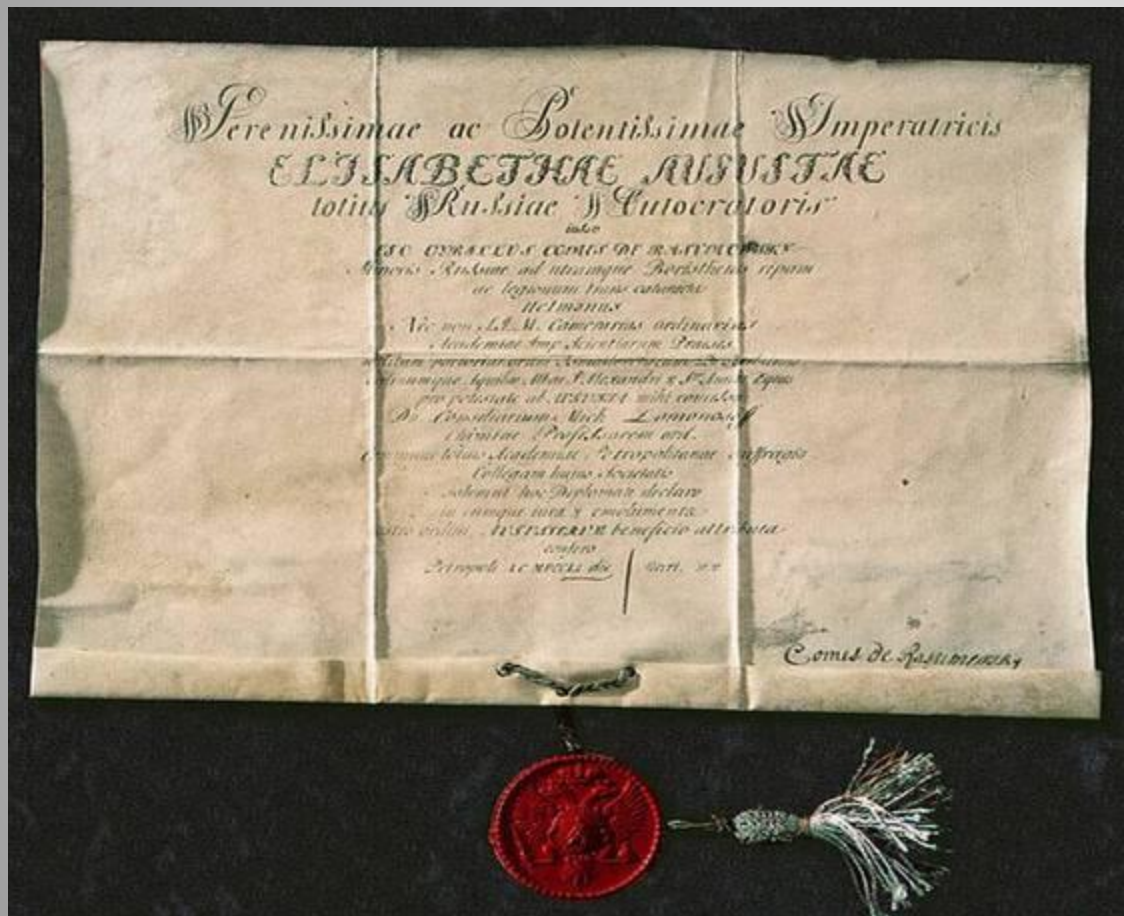 Serenissimae ac Potentissimae Imperatricis
ELISABETHAE AUGUSTAE
totius Russiae Autocratoris
iussu
EGO CYRILLUS COMES DE RASUMOWSKY
Minoris Russiae ad utramque Boristhenis ripam
ac legionum trans
Hetmanus
Nec non S.I.M. Camerarius ordinarius
Academiae Imp Scientiarum Praeses
Aquilae Albae S. Alexandri & St. Annae Eques
pro potestate ab AUGUSTA mihi concessa
Dn. Consiliarium Mich Lomonosoff
Chimiae Professorem ord.
totius Academiae Petropolitanae suffragio
Collegam huius Societatis
solemni hoc Diplomate declaro
iura & emolumenta
ordini AUGUSTAE beneficio attributa
confero
Petropoli die
Comes de Rasumowsky